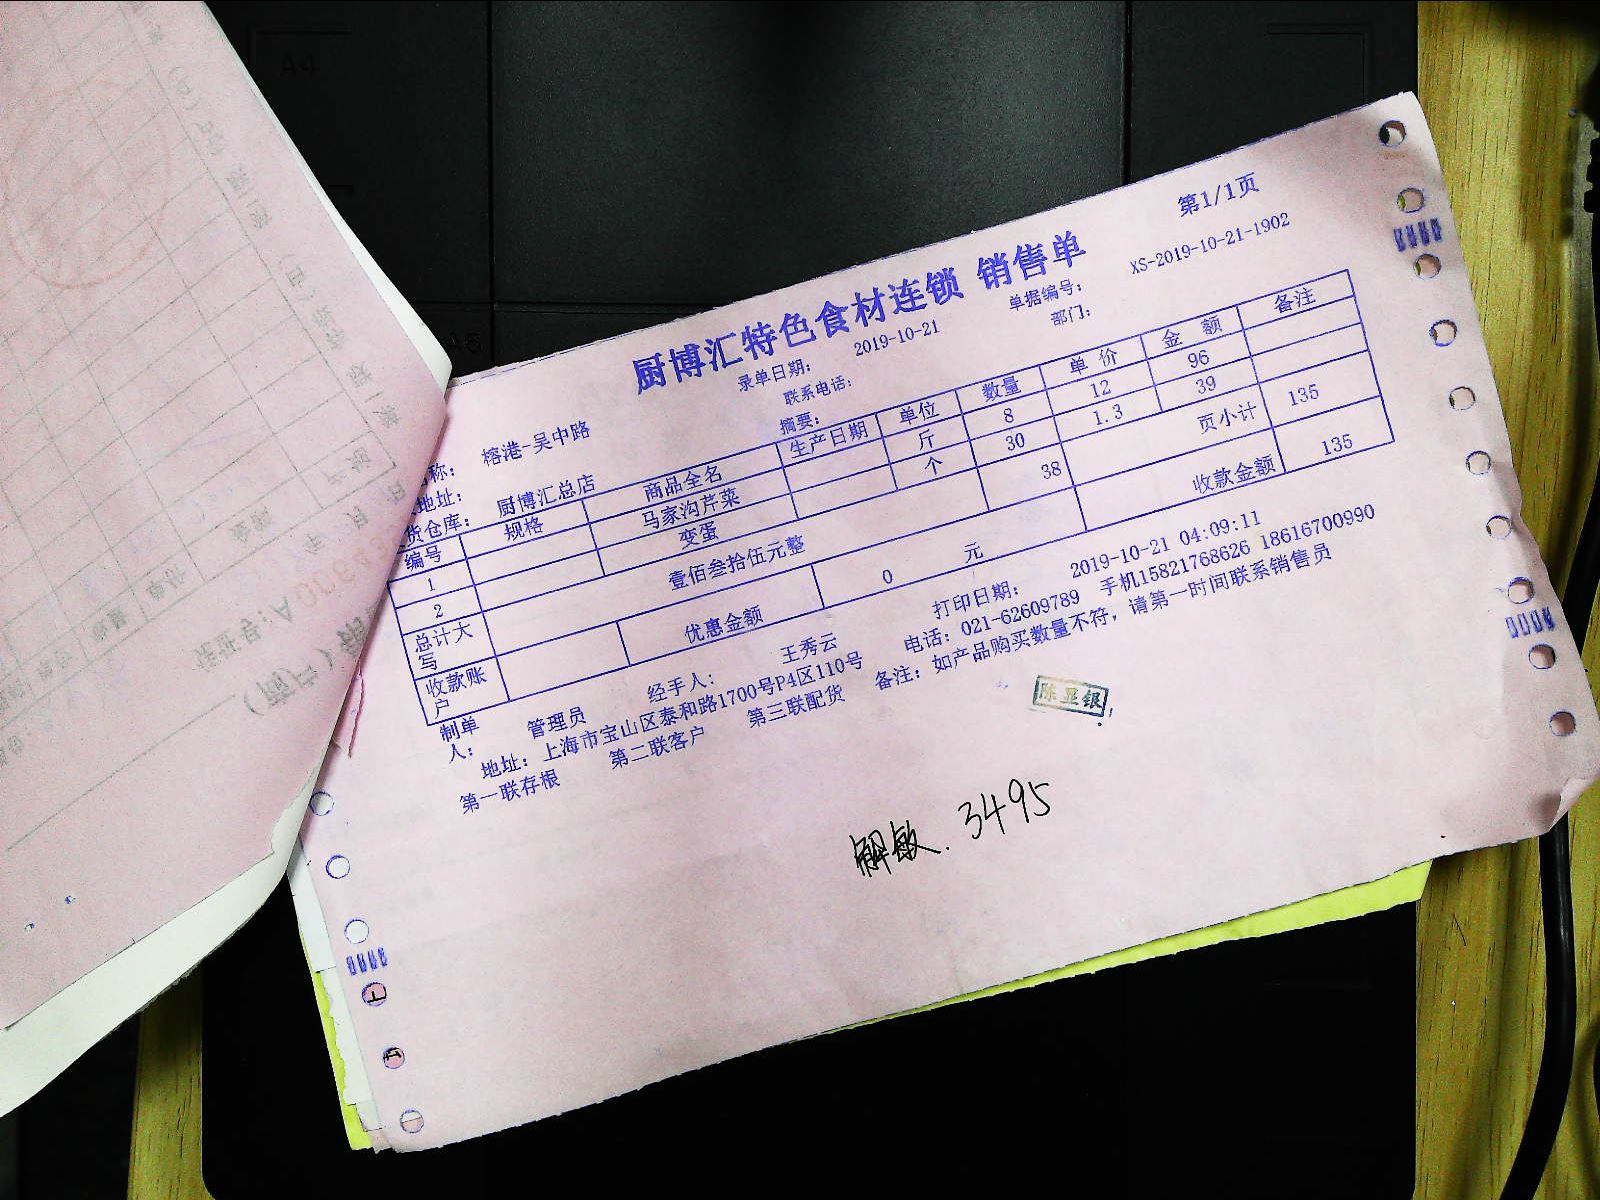 第1/1页
厨博汇特色食材连锁 销售单
录单日期： 2019-10-21 单据编号： XS-2019-10-21-1902
称： 榕港-吴中路 联系电话： 部门：
地址： 摘要：
货仓库： 厨博汇总店
编号 规格 商品全名 生产日期 单位 数量 单价 金额 备注
1 马家沟芹菜 斤 8 12 96
2 变蛋 个 30 1.3 39
总计大写 壹佰叁拾伍元整 38 页小计 135
收款账户 优惠金额 0 元 收款金额 135
制单人： 管理员 经手人： 王秀云 打印日期： 2019-10-21 04:09:11
地址：上海市宝山区泰和路1700号P4区110号 电话：021-62609789 手机15821768626 18616700990
第一联存根 第二联客户 第三联配货 备注：如产品购买数量不符，请第一时间联系销售员
陈显银
解敏. 3495